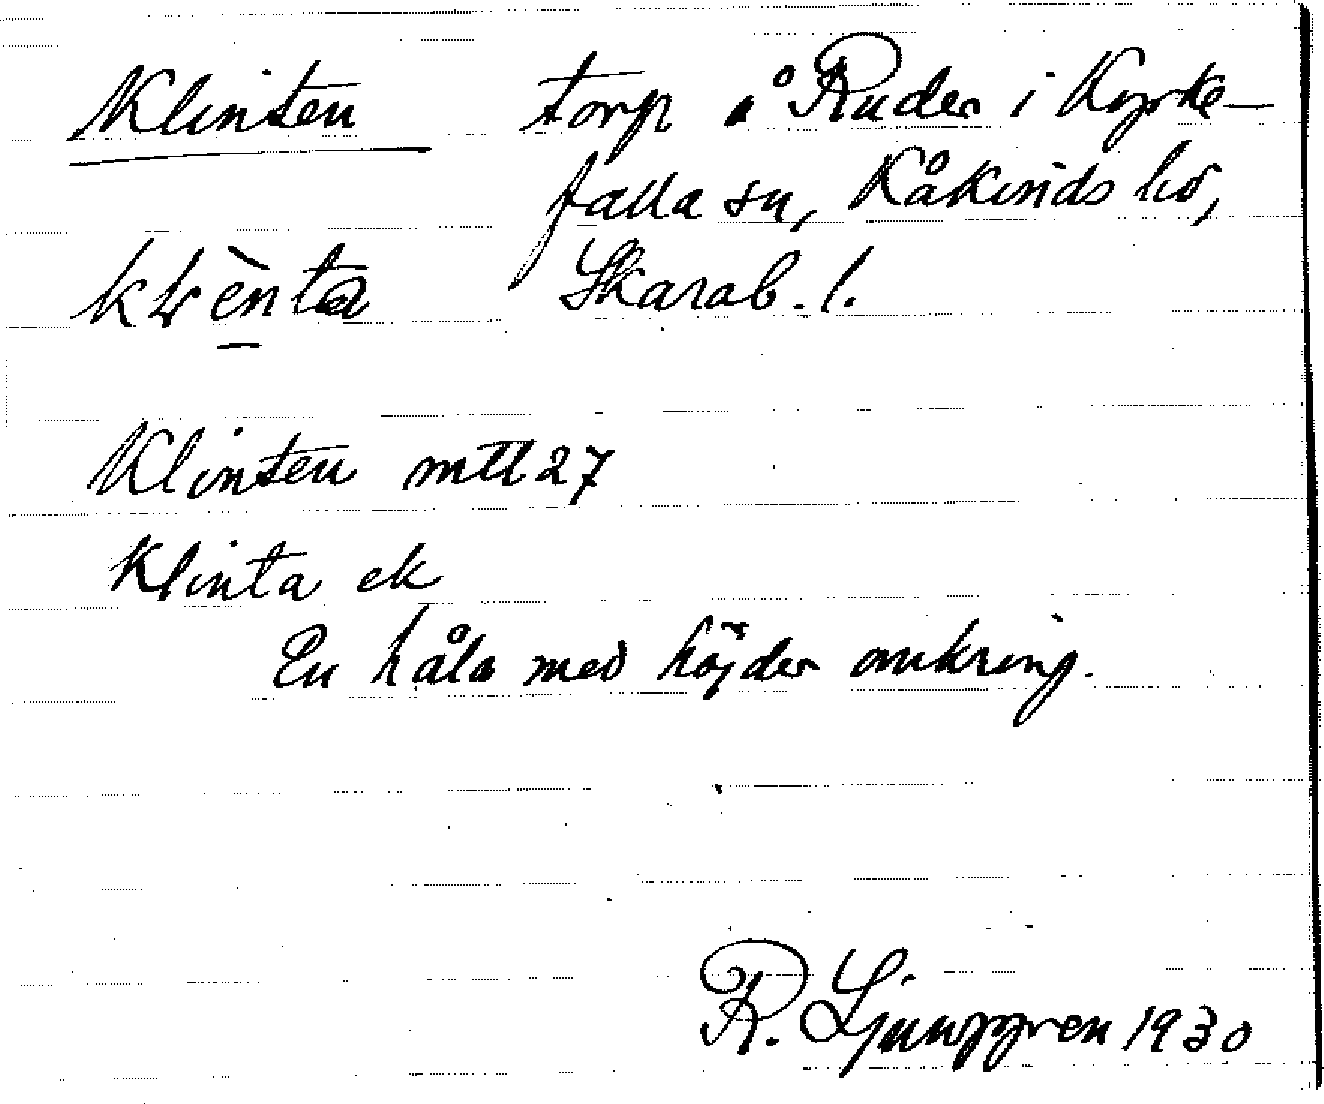 Klinten torp å Ruder i Kyrke-
falla sn, Kåkinds hd,
klènta Skarab. l.
Klinten mtl 27
Klinta ek
En håla med höjder omkring.
R. Ljunggren 1930